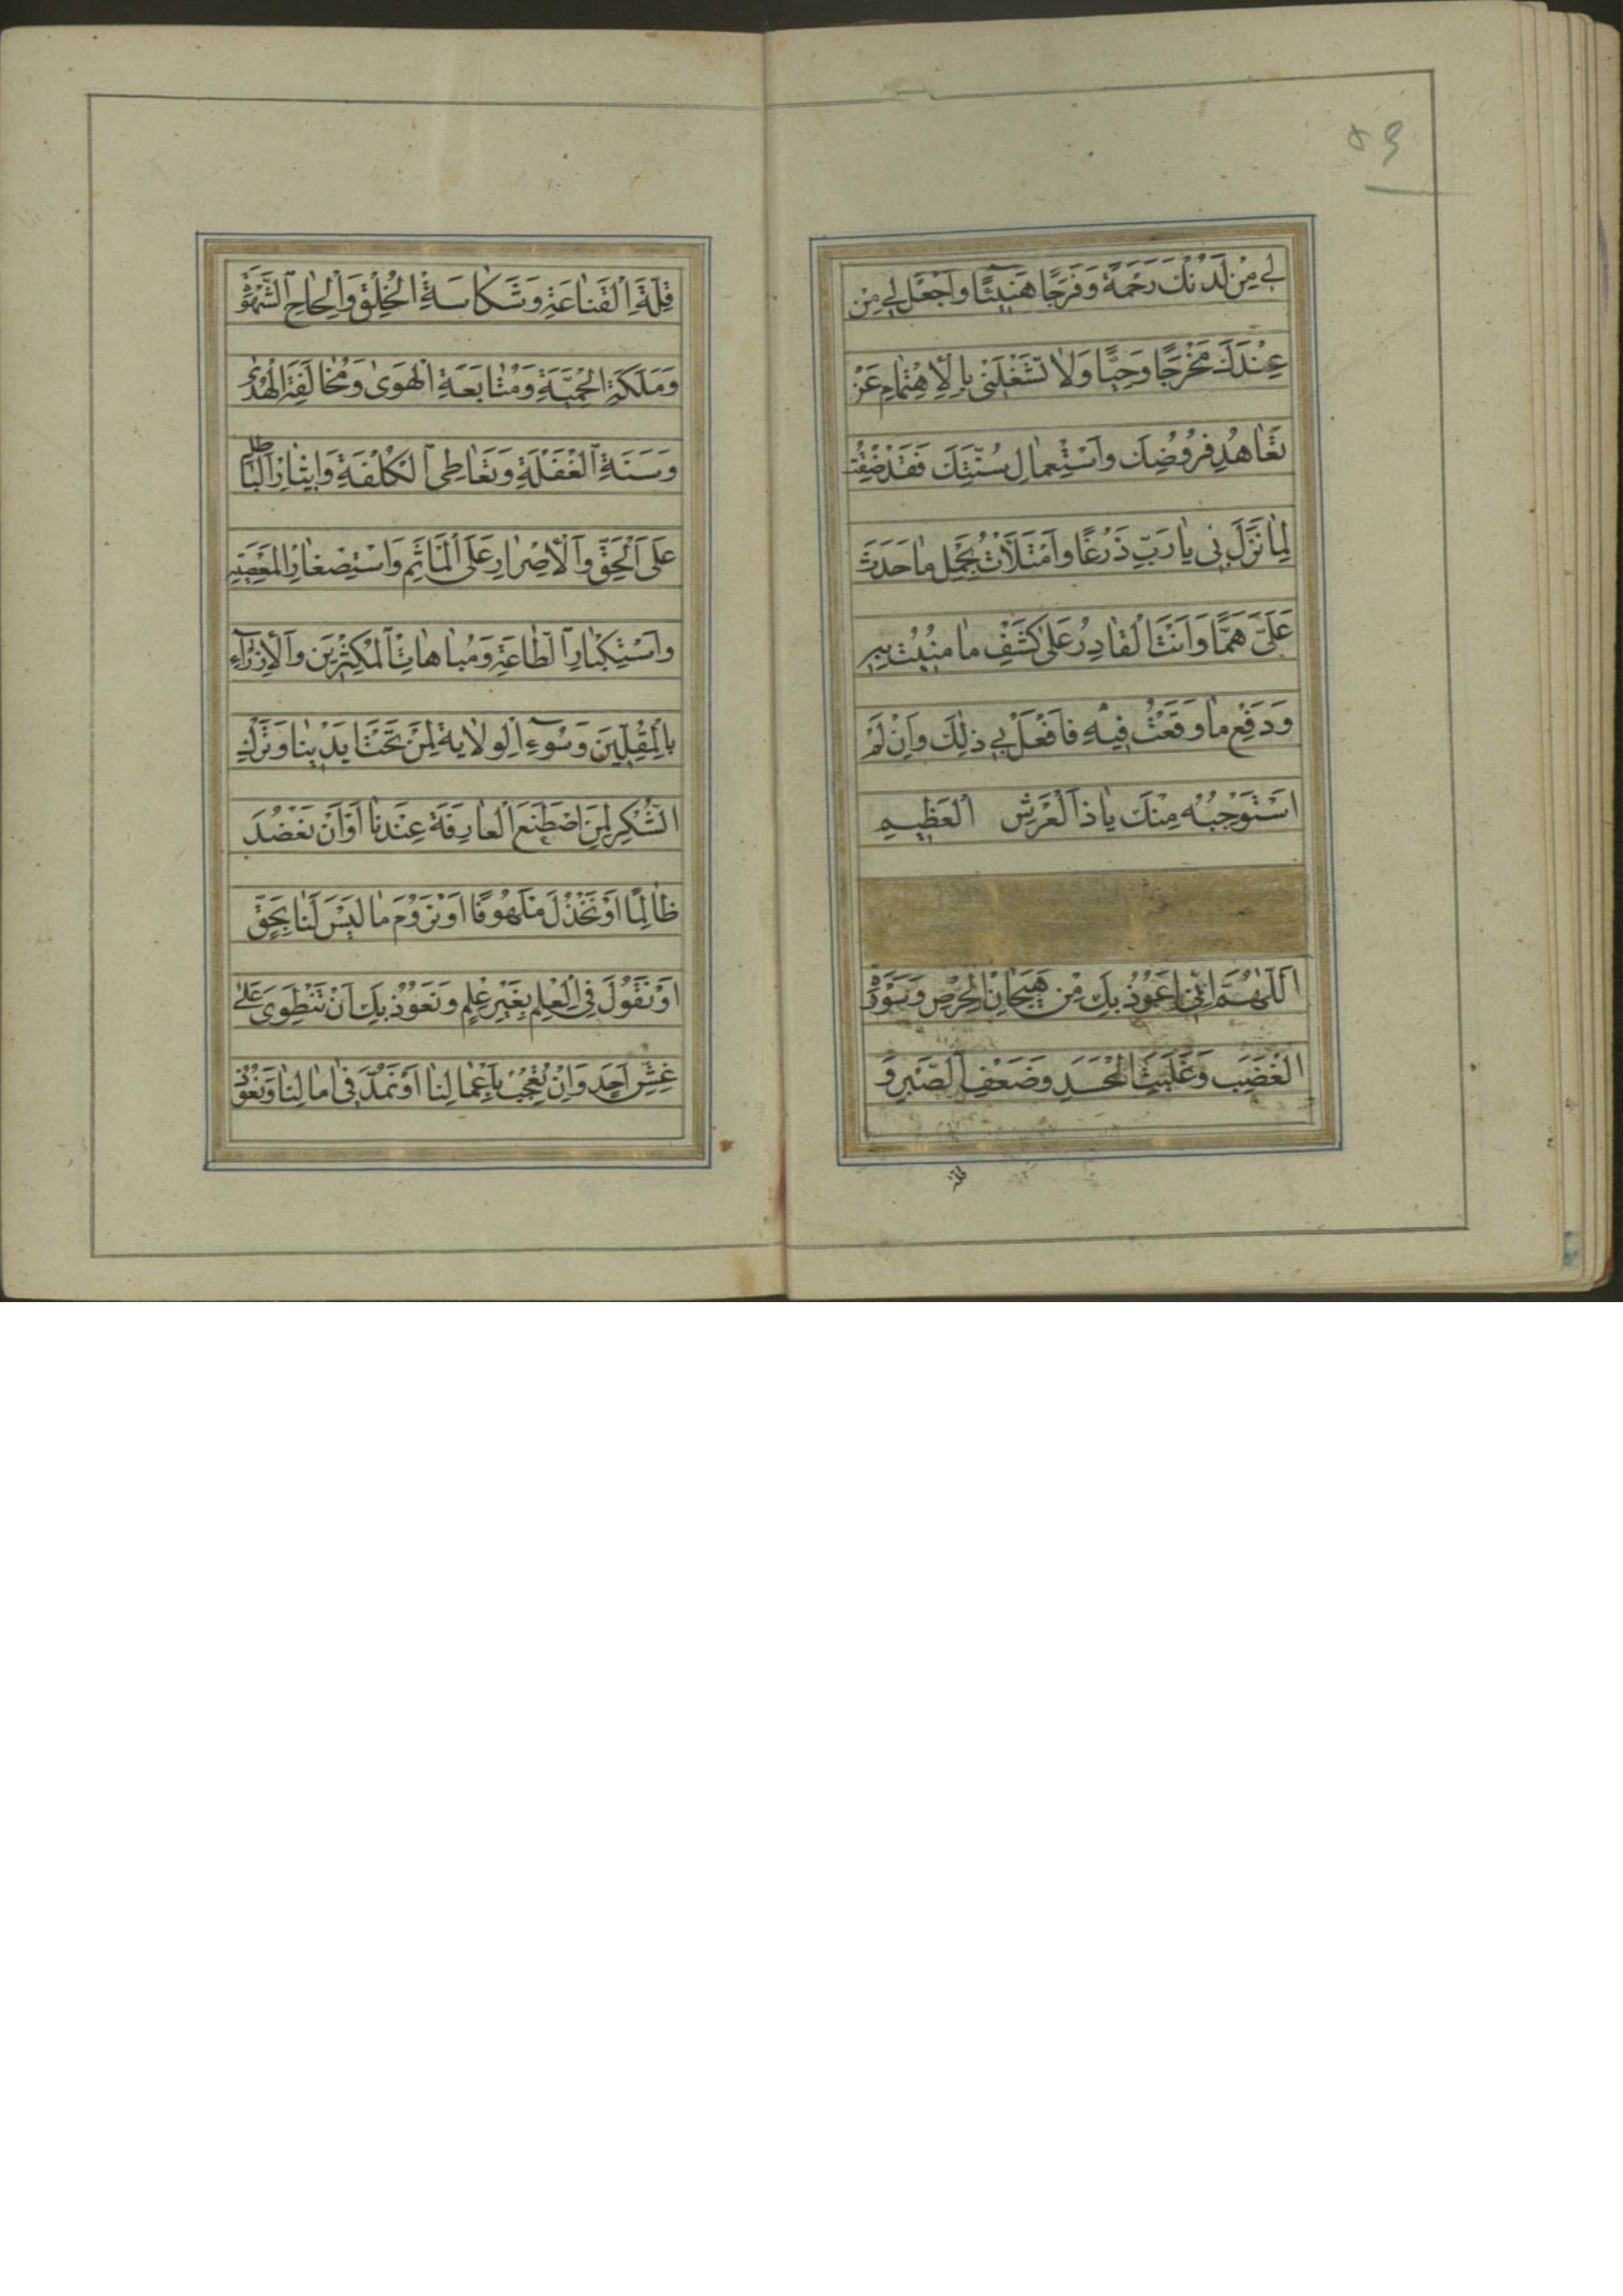 ٥٣
لِي مِنْ لَدُنْكَ رَحْمَةً وَفَرَجًا هَنِيئًا وَاجْعَلْ لِي مِنْ
عِنْدِكَ مَخْرَجًا وَحِيًّا وَلَا تَشْغَلْنِي بِالْاِهْتِمَامِ عَنْ
تَعَاهُدِ فُرُوضِكَ وَاسْتِعْمَالِ سُنَّتِكَ فَقَدْ ضِقْتُ
لِمَا نَزَلَ بِي يَا رَبِّ ذَرْعًا وَامْتَلَأْتُ بِحَمْلِ مَا حَدَثَ
عَلَيَّ هَمًّا وَاَنْتَ الْقَادِرُ عَلَى كَشْفِ مَا مُنِيتُ بِهِ
وَدَفْعِ مَا وَقَعْتُ فِيهِ فَافْعَلْ بِي ذٰلِكَ وَاِنْ لَمْ
اَسْتَوْجِبْهُ مِنْكَ يَا ذَا الْعَرْشِ الْعَظِيمِ
اَللّٰهُمَّ اِنِّي اَعُوذُ بِكَ مِنْ هَيَجَانِ الْحِرْصِ وَسَوْرَةِ
الْغَضَبِ وَغَلَبَةِ الْحَسَدِ وَضَعْفِ الصَّبْرِ وَ
قِلَّةِ
قِلَّةِ الْقَنَاعَةِ وَشَكَاسَةِ الْخُلُقِ وَاِلْحَاحِ الشَّهْوَةِ
وَمَلَكَةِ الْحَمِيَّةِ وَمُتَابَعَةِ الْهَوَى وَمُخَالَفَةِ الْهُدَى
وَسِنَةِ الْغَفْلَةِ وَتَعَاطِي الْكُلْفَةِ وَاِيثَارِ الْبَاطِلِ
عَلَى الْحَقِّ وَالْاِصْرَارِ عَلَى الْمَأْثَمِ وَاسْتِصْغَارِ الْمَعْصِيَةِ
وَاسْتِكْبَارِ الطَّاعَةِ وَمُبَاهَاتِ الْمُكْثِرِينَ وَالْاِزْرَاءِ
بِالْمُقِلِّينَ وَسُوءِ الْوِلَايَةِ لِمَنْ تَحْتَ اَيْدِينَا وَتَرْكِ
الشُّكْرِ لِمَنِ اصْطَنَعَ الْعَارِفَةَ عِنْدَنَا اَوْ اَنْ نَعْضُدَ
ظَالِمًا اَوْ نَخْذُلَ مَلْهُوفًا اَوْ نَرُومَ مَا لَيْسَ لَنَا بِحَقٍّ
اَوْ نَقُولَ فِي الْعِلْمِ بِغَيْرِ عِلْمٍ وَنَعُوذُ بِكَ اَنْ نَنْطَوِيَ عَلَى
غِشِّ اَحَدٍ وَاَنْ نُعْجِبَ بِاَعْمَالِنَا اَوْ نَمُدَّ فِي اٰمَالِنَا وَنَعُوذُ